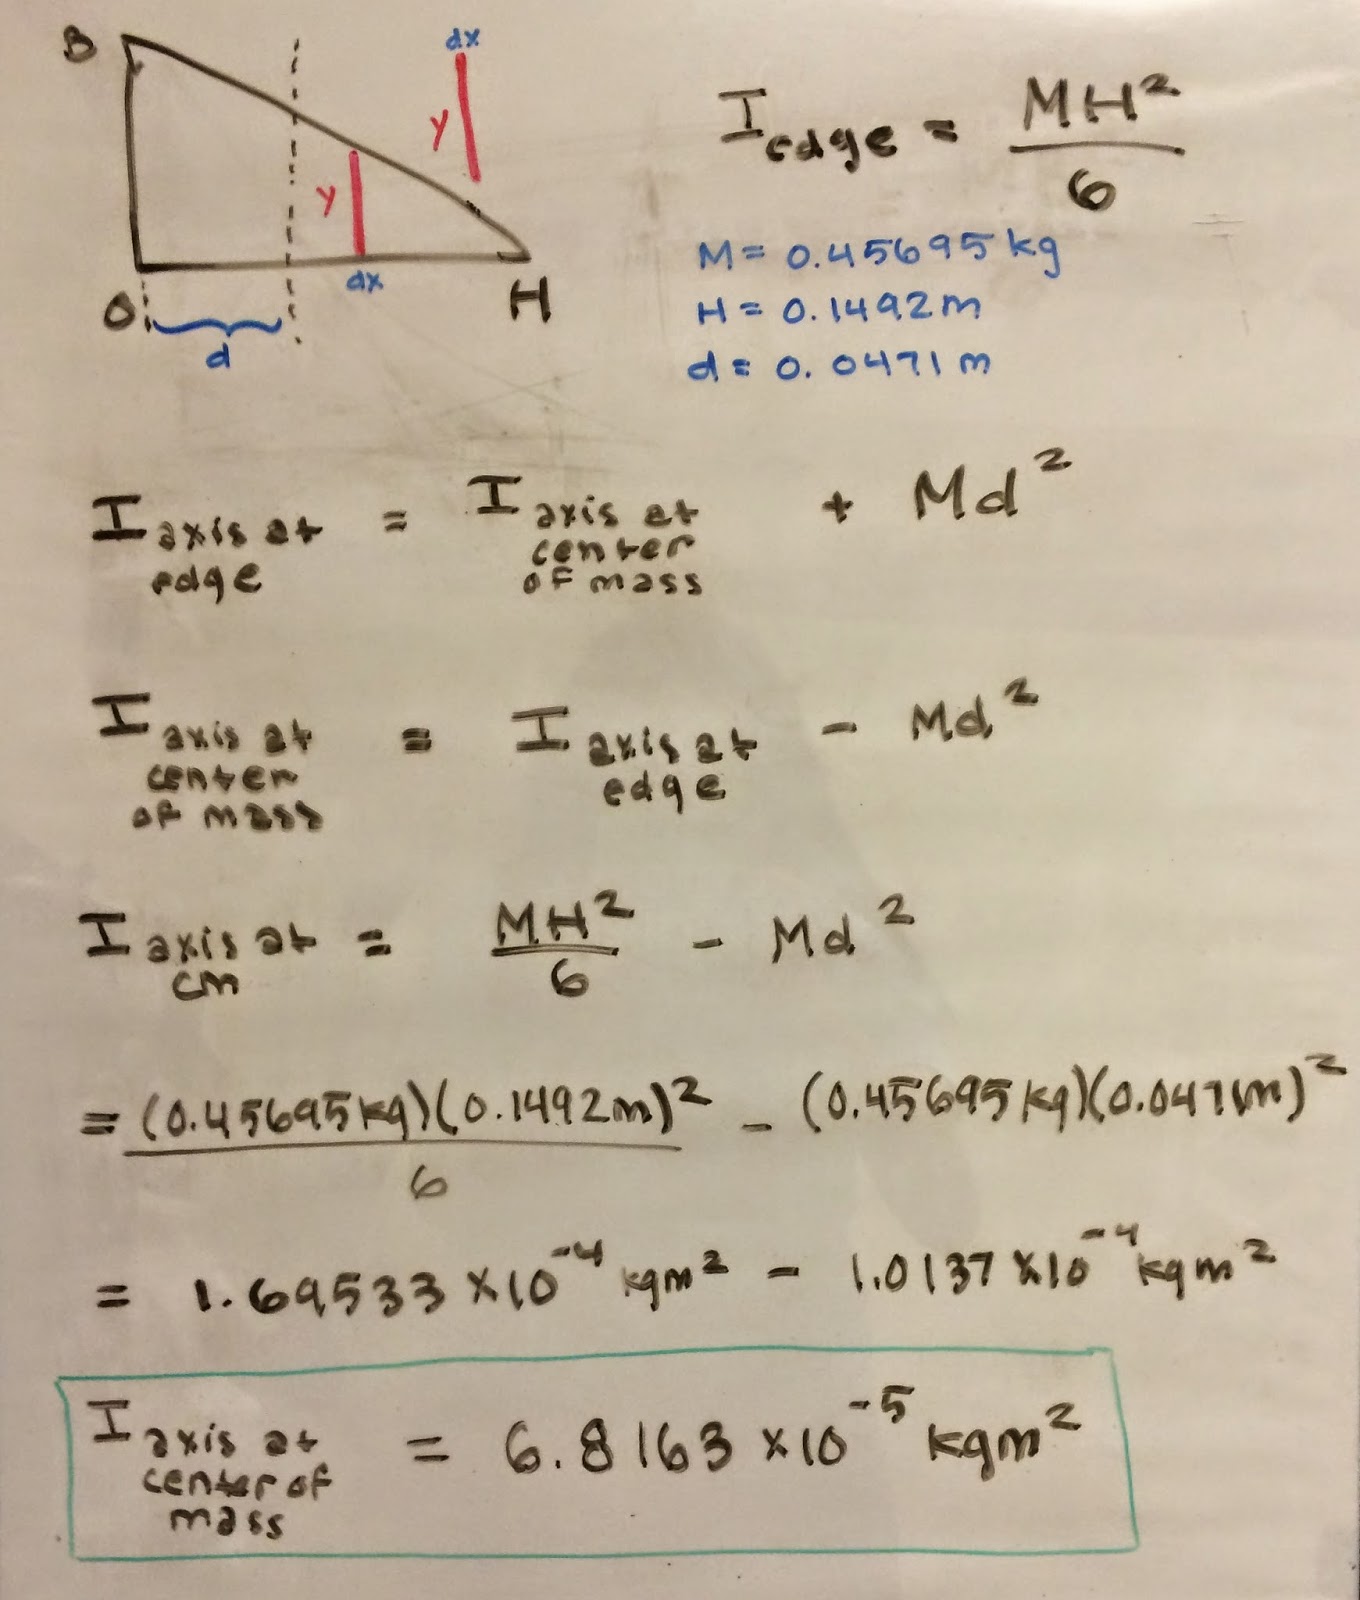 B
dx
y
y
dx
O
H
d
I edge = MH²/6
M = 0.45695 kg
H = 0.1492 m
d = 0.0471 m
I axis at edge = I axis at center of mass + Md²
I axis at center of mass = I axis at edge - Md²
I axis at cm = MH²/6 - Md²
= (0.45695 kg)(0.1492 m)²/6 - (0.45695 kg)(0.0471 m)²
= 1.69533 x10⁻⁴ kgm² - 1.0137 x10⁻⁴ kgm²
I axis at center of mass = 6.8163 x10⁻⁵ kgm²